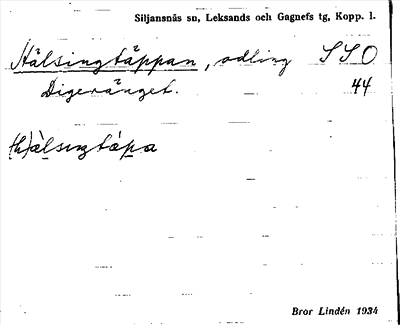 Siljansnäs sn, Leksands och Gagnefs tg, Kopp. l.
Hälsingtäppan, odling SSO
Digeränget. 44
(h)àlsıŋtápa
Bror Lindén 1934